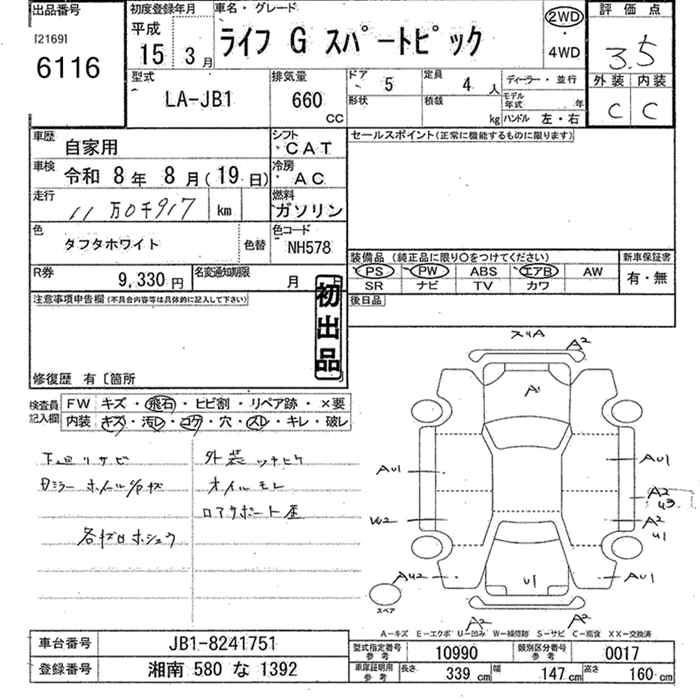 出品番号 初度登録年月 車名・グレード 評価点
[2169] 平成 15 3月 ライフ G スパートピック 2WD・4WD 3.5
6116
型式 排気量 ドア 5 定員 4人 ディーラー・並行 外装 内装
LA-JB1 660 CC 形状 積載 kg モデル年式 年 ハンドル 左・右 C C
車歴 自家用 シフト CAT セールスポイント(正常に機能するものに限ります)
車検 令和 8年 8月(19日) 冷房 AC
走行 11万0千917 km 燃料 ガソリン
色 タフタホワイト 色替 色コード NH578 装備品(純正品に限り○をつけてください) 新車保証書
R券 9,330円 名変通知期限 月 PS PW ABS エアB AW 有・無
SR ナビ TV カワ
注意事項申告欄(不具合内容等は具体的に記入して下さい) 初出品 後日品
修復歴 有〔箇所
検査員記入欄 FW キズ・飛石・ヒビ割・リペア跡・×要
内装 キズ・汚レ・コゲ・穴・スレ・キレ・破レ
下廻リサビ 外装
オイルモレ
スリA A2
A1
AU1 AU1
A2
W2 A2
U1
AU2 U1 AU1
スペア A2 A2
A-キズ E-エクボ U-凹み W-補修跡 S-サビ C-腐食 XX-交換済
車台番号 JB1-8241751 型式指定番号 参考 10990 類別区分番号 参考 0017
登録番号 湘南 580 な 1392 車庫証明用 参考 長さ 339 cm 幅 147 cm 高さ 160 cm